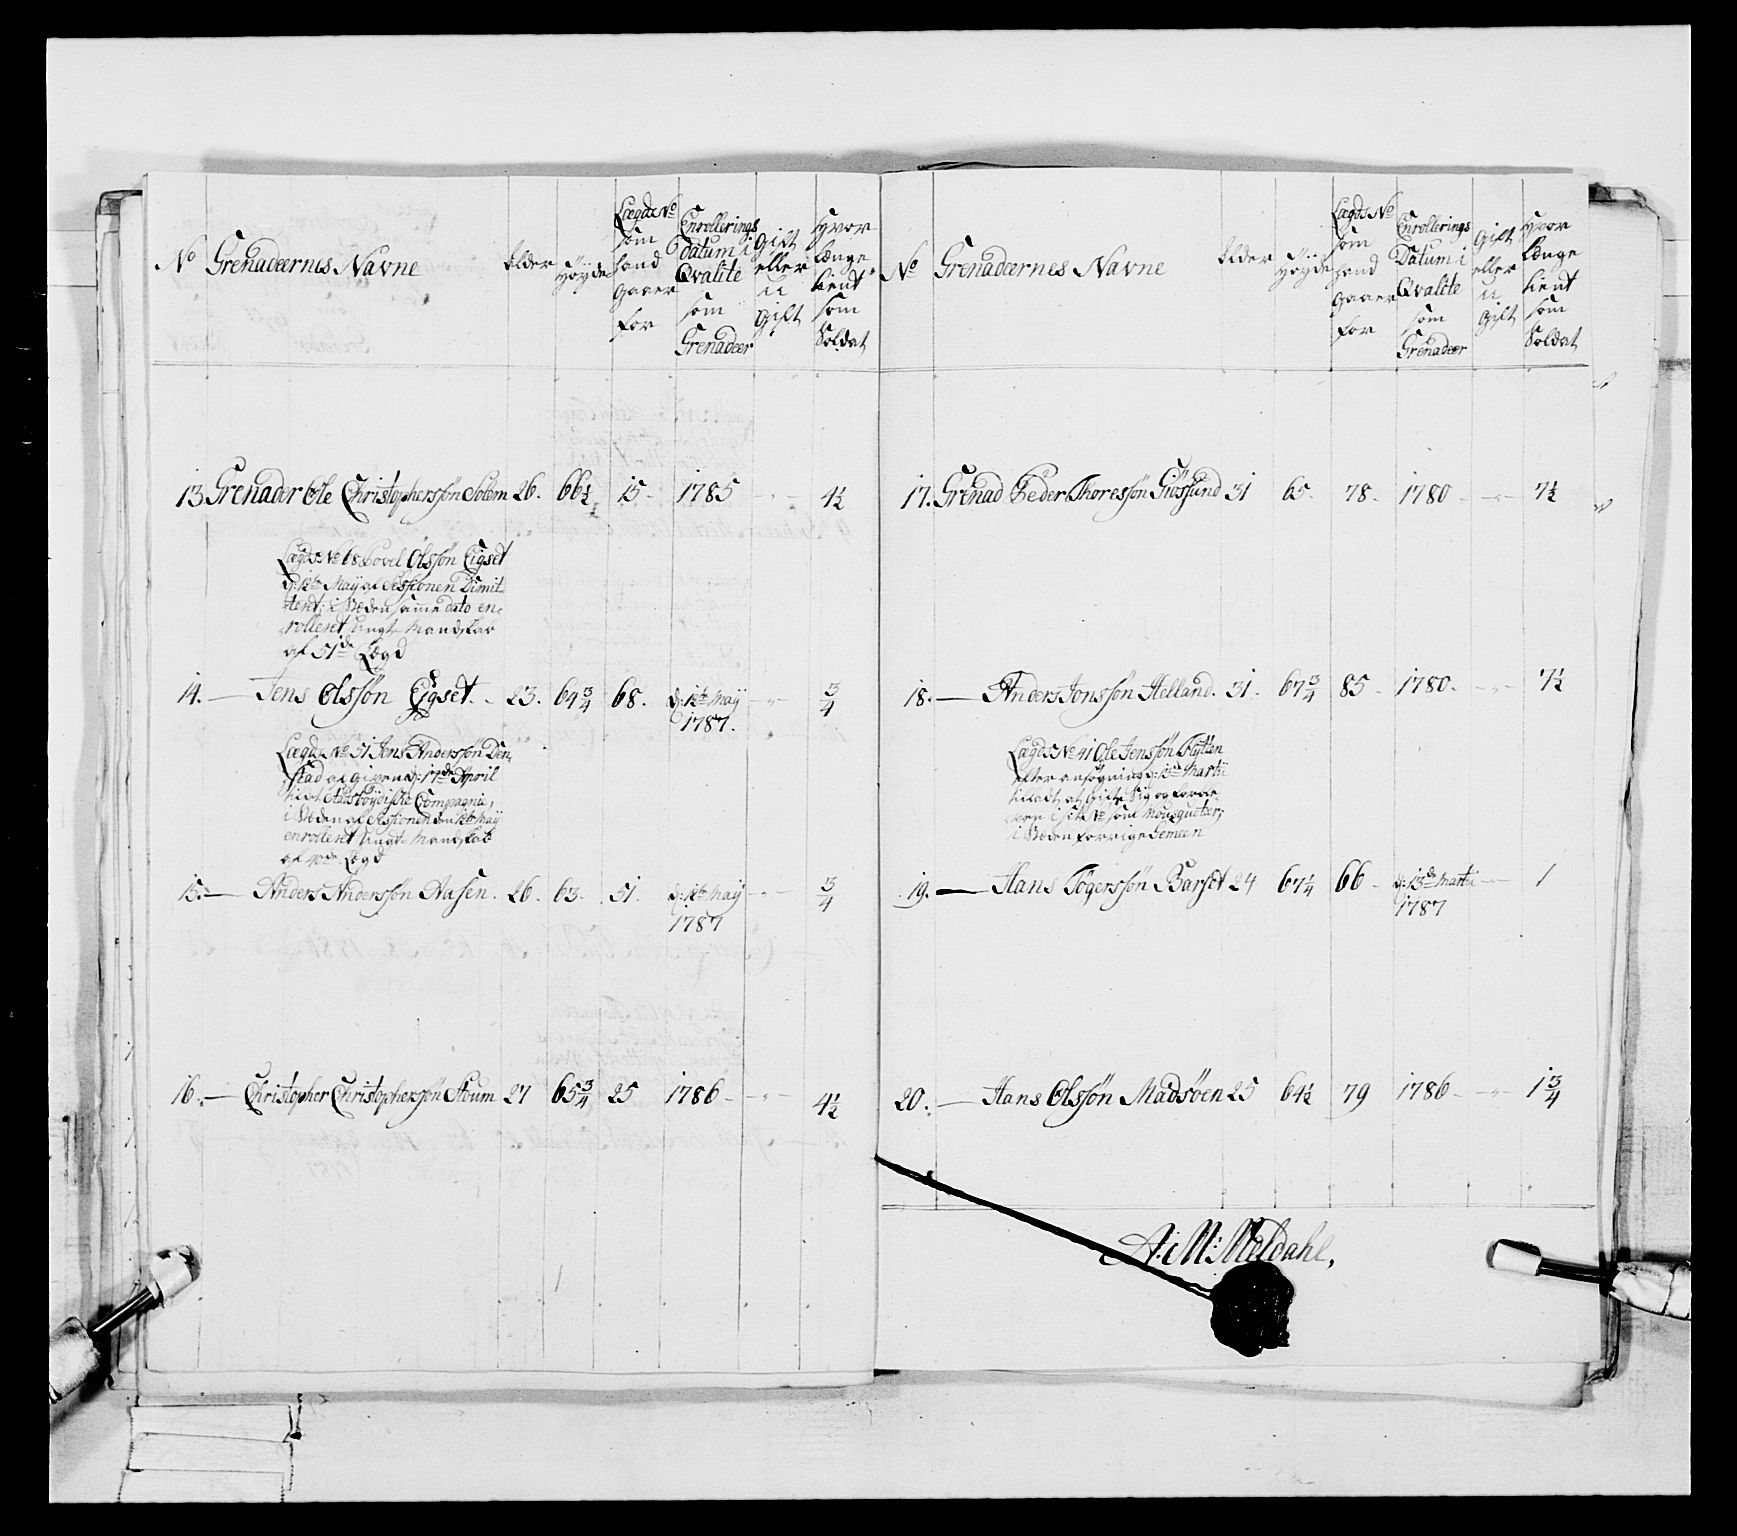 No Grenadeernis Navne Alder Höyde Lægds No som hand gaaer for Enrollerings Datum i Qvalite som Grenadeer Gift eller u Gift Hvor længe tient som Soldat
13. Grenader Ole Christophersøn Solem 26. 66½ 15 - 1785 - " - 4½
Lægds No 68 Povel Olssøn Eigset
d: 12te Maÿ af Sessionen Dimit-
tert; i Steden samme dato en-
rolleret Ungt-Mandskab
af 51de Lægd
14. — Jens Olssøn Eigset. - 23. 64¾ 68. d: 12te Maÿ - " - ¾
1787.
Lægds No 51 Jens Anderssøn Den-
stad afgiven d: 17de April
til det Compagnie,
i Steden af Sessionen den 12te Maÿ
enrolleret Ungt-Mandskab
af 40de Lægd
15. — Anders Anderssøn Aasen. 26. 63. 51. d: 12te Maÿ - " - ¾
1787
16. — Christopher Christophersøn Houm 27 65¾ 25 1786 - " - 4½
No Grenadeernes Navne Alder Höyde Lægds No som hand gaaer for Enrollerings Datum i Qvalite som Grenadeer Gift eller u Gift Hvor længe tient som Soldat
17. Grenad Peder Thoressøn Giössund 31 65. 78. 1780 - " - 7½
18. — Anders Jonssøn Helland. 31. 67¾ 85 - 1780. - " - 7½
Lægds No 41 Ole Jenssøn Flytten
efter ansøgning d: 13de Martii
tilladt at gifte Sig og forbli-
i sit No som Mousqueteer;
i Steden forrige Gemeen
19. — Hans Togerssøn Barset 24 67¼ 66 - d: 13de Martii - " - 1
1787
20. — Hans Olssøn Madsøen 25 64½ 79 1786 - " - 1¾
A: M: Meldahl,